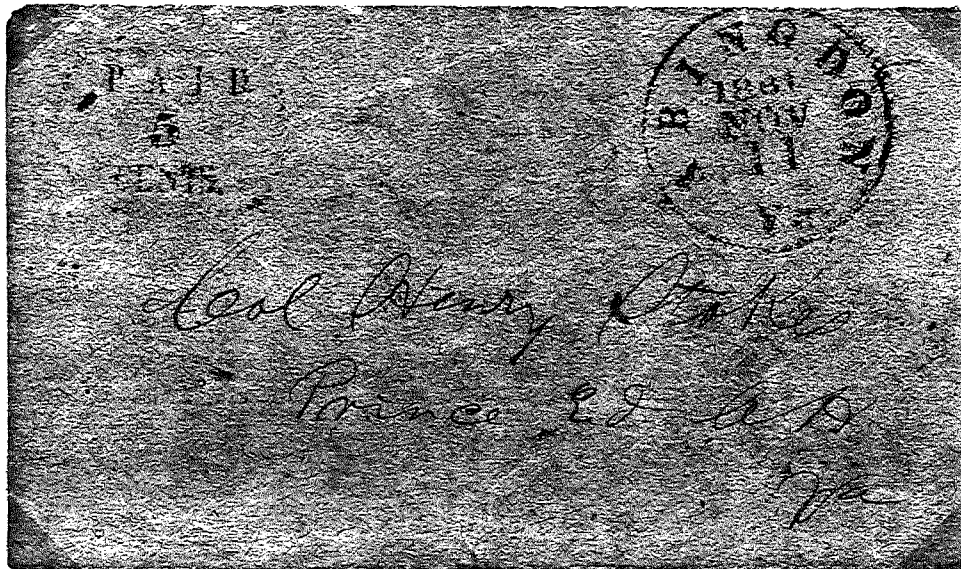 PAID
5
CENTS
ABINGDON
1861
NOV
11
VA
Col Henry Stokes
Prince Ed
Va